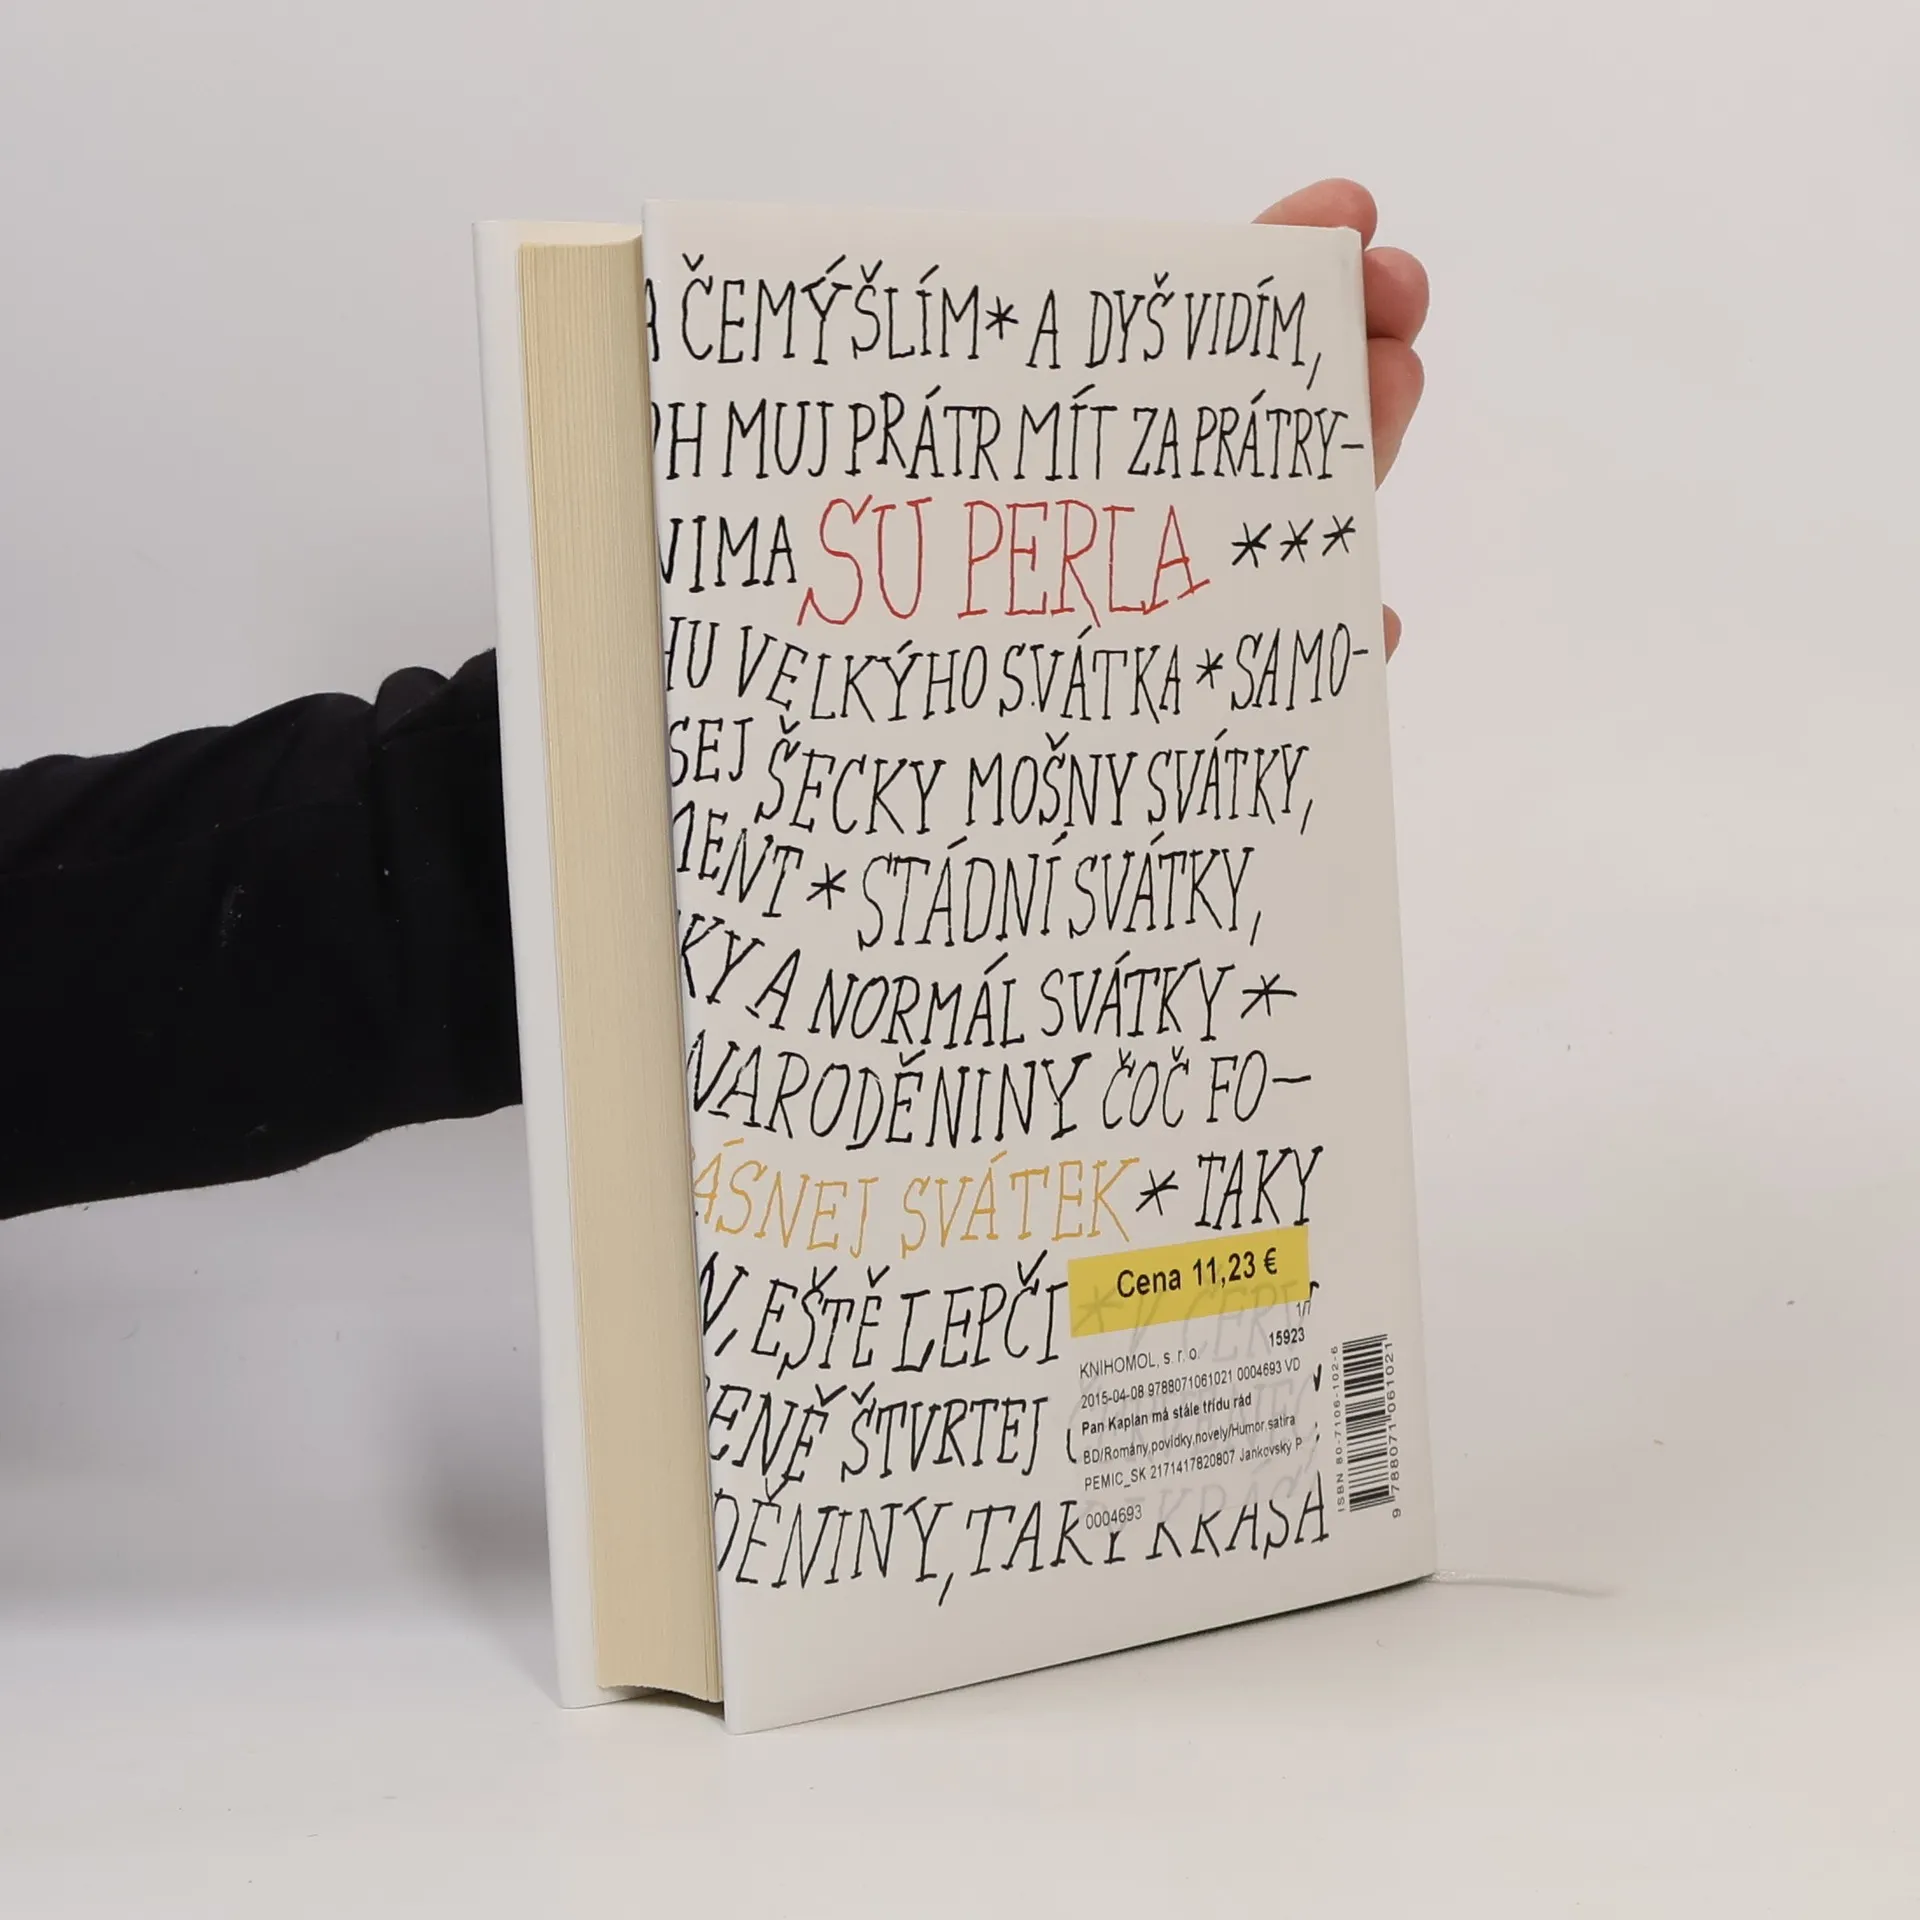 ČEMÝŠLÍM * A DYŠ VIDÍM,
MUJ PRÁTR MÍT ZA PRÁTRY-
NIMA SU PERLA ***
VELKÝHO SVÁTKA * SAMO-
SEJ ŠECKY MOŠNY SVÁTKY,
MENT * STÁDNÍ SVÁTKY,
KY A NORMÁL SVÁTKY *
NARODĚNINY ČOČ FO-
ÁSNEJ SVÁTEK * TAKY
N, EŠTĚ LEPČI * V ČERV
ENĚ ŠTVRTEJ ČERVENEC,
DĚNINY, TAKY KRÁSA
Cena 11,23 €
1/1
15923
KNIHOMOL, s. r. o.
2015-04-08 9788071061021 0004693 VD
Pan Kaplan má stále třídu rád
BD/Romány,povídky,novely/Humor,satira
PEMIC_SK 2171417820807 Jankovský P
0004693
ISBN 80-7106-102-6
9 788071 061021